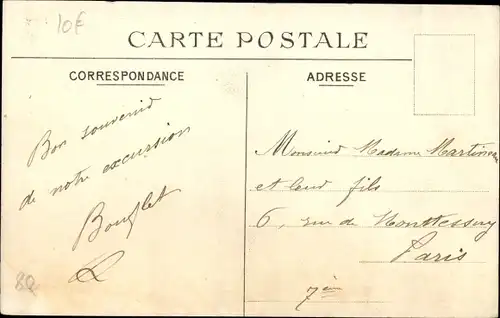 10€
CARTE POSTALE
CORRESPONDANCE
ADRESSE
Bon souvenir
de notre excursion
Monsieur Madame Martineau
et leur fils
6, rue de Monttessuy
Paris
7ème
BQ